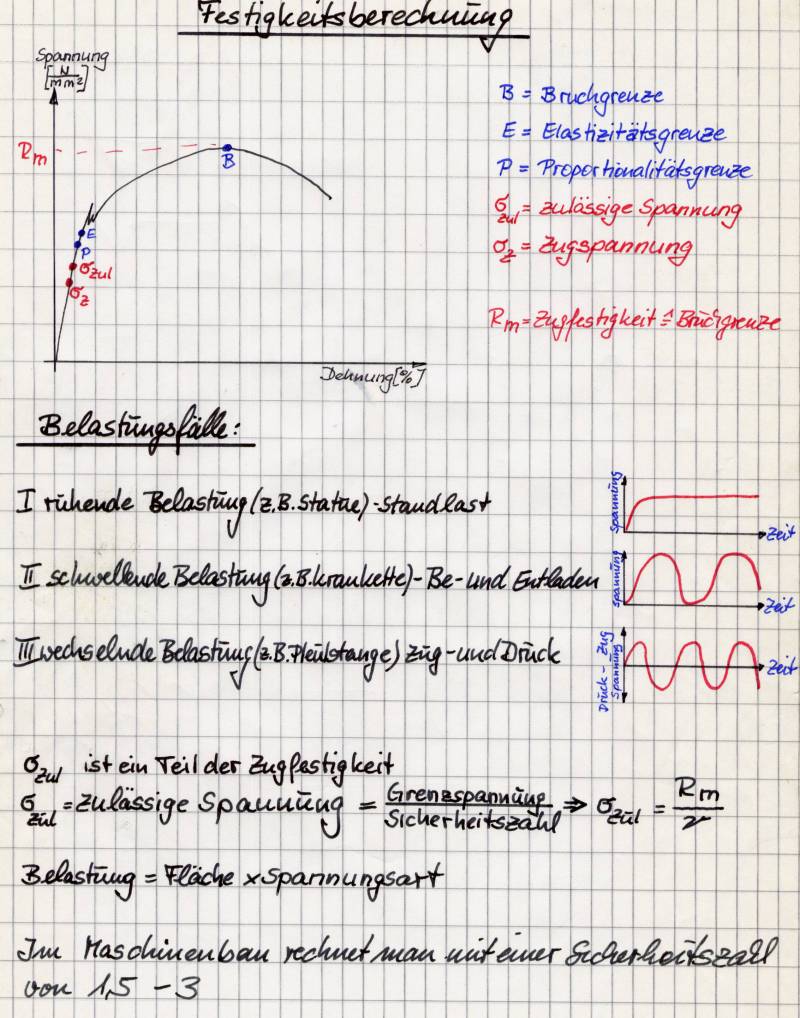 Festigkeitsberechnung
Spannung
[N/mm²]
Rm
B
E
P
σzul
σz
Dehnung [%]
B = Bruchgrenze
E = Elastizitätsgrenze
P = Proportionalitätsgrenze
σzul = zulässige Spannung
σz = Zugspannung
Rm = Zugfestigkeit ≙ Bruchgrenze
Belastungsfälle:
I ruhende Belastung (z.B. Statue) - Standlast
Spannung
Zeit
II schwellende Belastung (z.B. Krankette) - Be- und Entladen
Spannung
Zeit
III wechselnde Belastung (z.B. Pleulstange) Zug - und Druck
Druck - Zug
Spannung
Zeit
σzul ist ein Teil der Zugfestigkeit
σzul = zulässige Spannung = Grenzspannung / Sicherheitszahl ⇒ σzul = Rm / ν
Belastung = Fläche x Spannungsart
Im Maschinenbau rechnet man mit einer Sicherheitszahl
von 1,5 - 3